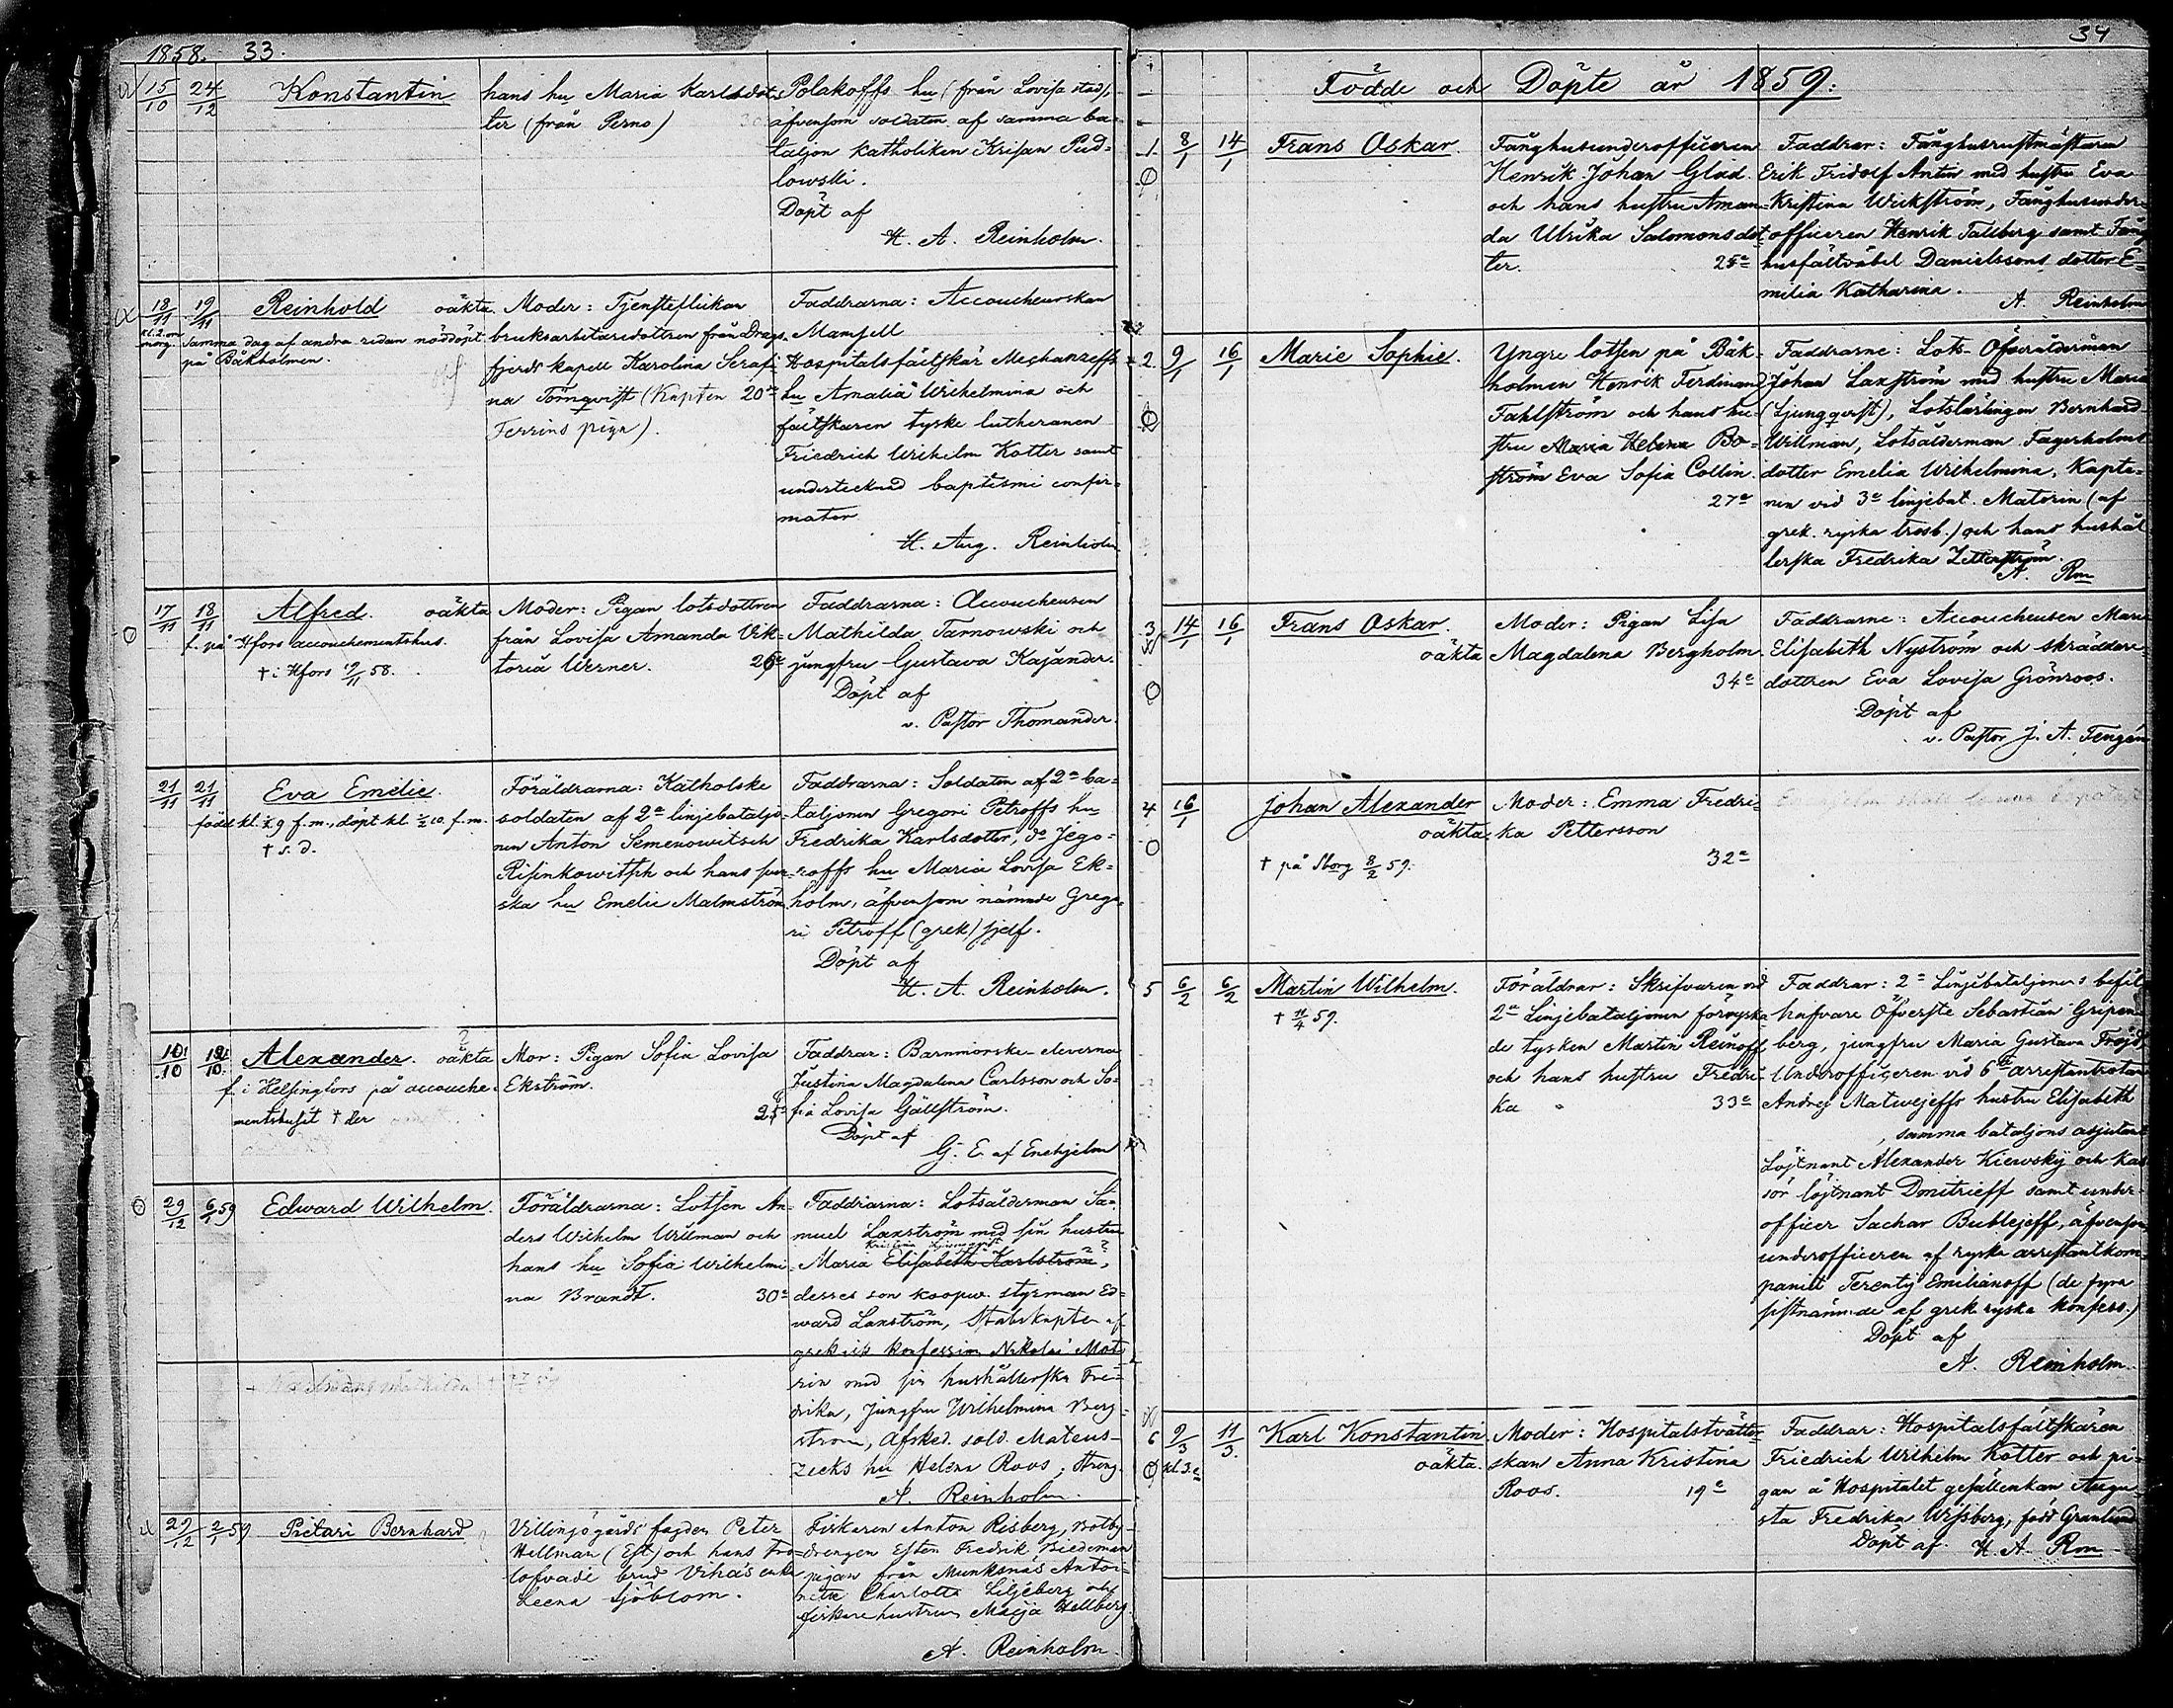 1858. 33.
15/10 24/12 Konstantin hans hu Maria Karlsdot-
ter (från Perno)
Polakoffs hu (från Lovisa stad),
äfvensom soldaten af samma ba-
taljon katholiken Krisan Pud-
lowski.
Döpt af
H. A. Reinholm.
18/11 19/11 Reinhold oäkta.
kl. 2. om morg. samma dag af andra sidan nöddöpt
på Båkholmen.
Moder: Tjensteflickan
bruksarbetaredottren från Drags-
fjerds kapell Karolina Serafi-
na Törnqvist (Kapten 20
Ferrins piga).
Faddrarna: Accoucheurskan
Mamsell
Hospitalsfältskär Meshanzeffs
hu Amalia Wilhelmina och
fältskären tyske lutheranen
Friedrich Wilhelm Kotter samt
undertecknad baptismi confir-
mator
H. Aug. Reinholm
17/11 18/11 Alfred. oäkta
f. på Hfors accouchementshus.
† i Hfors 19/11 58.
Moder: Pigan lotsdottren
från Lovisa Amanda Vik-
toria Werner.
Faddrarna: Accoucheusen
Mathilda Tarnowski och
jungfru Gustava Kajander.
Döpt af
v. Pastor Thomander.
21/11 21/11 Eva Emelie.
född kl. ½ 9 f.m., döpt kl. ½ 10. f.m.
† s. d.
Föräldrarna: Katholske
soldaten af 2a linjebataljo-
nen Anton Semenowitsch
Risinkowitsch och hans
ska hu Emelie Malmström
Faddrarna: Soldaten af 2a ba-
taljonen Gregori Petroffs hu
Fredrika Karlsdotter, do Jego-
roffs hu Maria Lovisa Ek-
holm, äfvensom nämnde Grego-
ri Petroff (grek) sjelf.
Döpt af
H. A. Reinholm.
10/10 Alexander. oäkta
f. i Helsingfors på accouche-
mentshuset † der
Mor: Pigan Sofia Lovisa
Ekström.
Faddrar: Barnmorske-eleverna
Justina Magdalena Carlsson och So-
fia Lovisa Gällström.
Döpt af
G. E. af Enehjelm
29/12 6/1 59 Edward Wilhelm.
Föräldrarna: Lotsen An-
ders Wilhelm Willman och
hans hu Sofia Wilhelmi-
na Brandt. 30
Faddrarna: Lotsålderman Sa-
muel Laxström med sin hustru
Kristina Ljungqvist
Maria Elisabeth Karlström,
desses son koopv. styrman Ed-
ward Laxström, Stabskapten af
grekisk konfession Nikolai Mat-
rin med sin hushållerska Fre-
drika, Jungfru Wilhelmina Berg-
ström, Afsked. sold. Mateus-
zecks hu Helena Roos,
A. Reinholm.
29/12 2/1 59 Pietari Bernhard
Villinjögårds fogden Peter
Hellman (Est) och hans tro-
lofvade brud enka
Leena Sjöblom.
Fiskaren Anton Risberg, Botby-
drengen Esten Fredrik Biedeman
pigan från Munksnäs Antoi-
nette Charlotta Liljeberg och
fiskare hustrun Maija Hellberg
A. Reinholm.
34
Födde och Döpte år 1859.
1. 8/1 14/1 Frans Oskar.
Fånghusunderofficeren
Henrik Johan Glad.
och hans hustru Aman-
da Ulrika Salomonsdot-
ter. 25
Faddrar: Fånghusrustmästaren
Erik Fridolf Antin med hustru Eva
Kristina Wickström, Fånghusunder-
officeren Henrik Tallberg samt Fång-
husfältväbel Danielssons dotter E-
milia Katharina.
A. Reinholm
2. 9/1 16/1 Marie Sophie.
Yngre lotsen på Båk-
holmen Henrik Ferdinand
Fahlström och hans hu-
stru Maria Helena Bo-
ström Eva Sofia Collin.
27
Faddrarne: Lots-Öfverålderman
Johan Laxström med hustru Maria
(Ljungqvist), Lotslärlingen Bernhard
Willman, Lotsålderman Fagerholms
dotter Emelia Wilhelmina, Kapte-
nen vid 3e linjebat. Matorin (af
grek. ryska trosb.) och hans hushål-
lerska Fredrika Zitterström.
A. Rm
3 14/1 16/1 Frans Oskar.
oäkta
Moder: Pigan Lisa
Magdalena Bergholm.
34
Faddrarne: Accoucheusen Maria
Elisabeth Nyström och skräddare-
dottren Eva Lovisa Grönroos.
Döpt af
v. Pastor J. A. Tengén
4 16/1 Johan Alexander
oäkta.
† på Sborg 8/2 59.
Moder: Emma Fredri-
ka Pettersson
32
5 6/2 6/2 Martin Wilhelm.
† 11/4 59.
Föräldrar: Skrifvaren vid
2a Linjebataljonen förryska-
de tysken Martin Reinoff
och hans hustru Fredri-
ka 33
Faddrar: 2a Linjebataljonens befäl-
hafvare Öfverste Sebastian Gripen-
berg, jungfru Maria Gustava Fröjd
Underofficeren vid 6te arrestantrotan
Andrej Matwejeffs hustru Elisabeth
, samma bataljons adjutant
Löjtnant Alexander Kiewsky och kas-
sör löjtnant Dmitrieff samt under-
officer Sachar Bublejeff, äfvensom
underofficeren af ryska arrestantkom-
paniet Terentij Emilianoff (de fyra
sistnämnde af grek ryska konfess.)
Döpt af
A. Reinholm.
6 9/3 11/3. Karl Konstantin.
kl. 3. oäkta.
Moder: Hospitalstvätter-
skan Anna Kristina
Roos. 19
Faddrar: Hospitalsfältskären
Friedrich Wilhelm Kotter och pi-
gan å Hospitalet gesällenkan Augu-
sta Fredrika Wissberg, född Granlund
Döpt af H. A. Rm